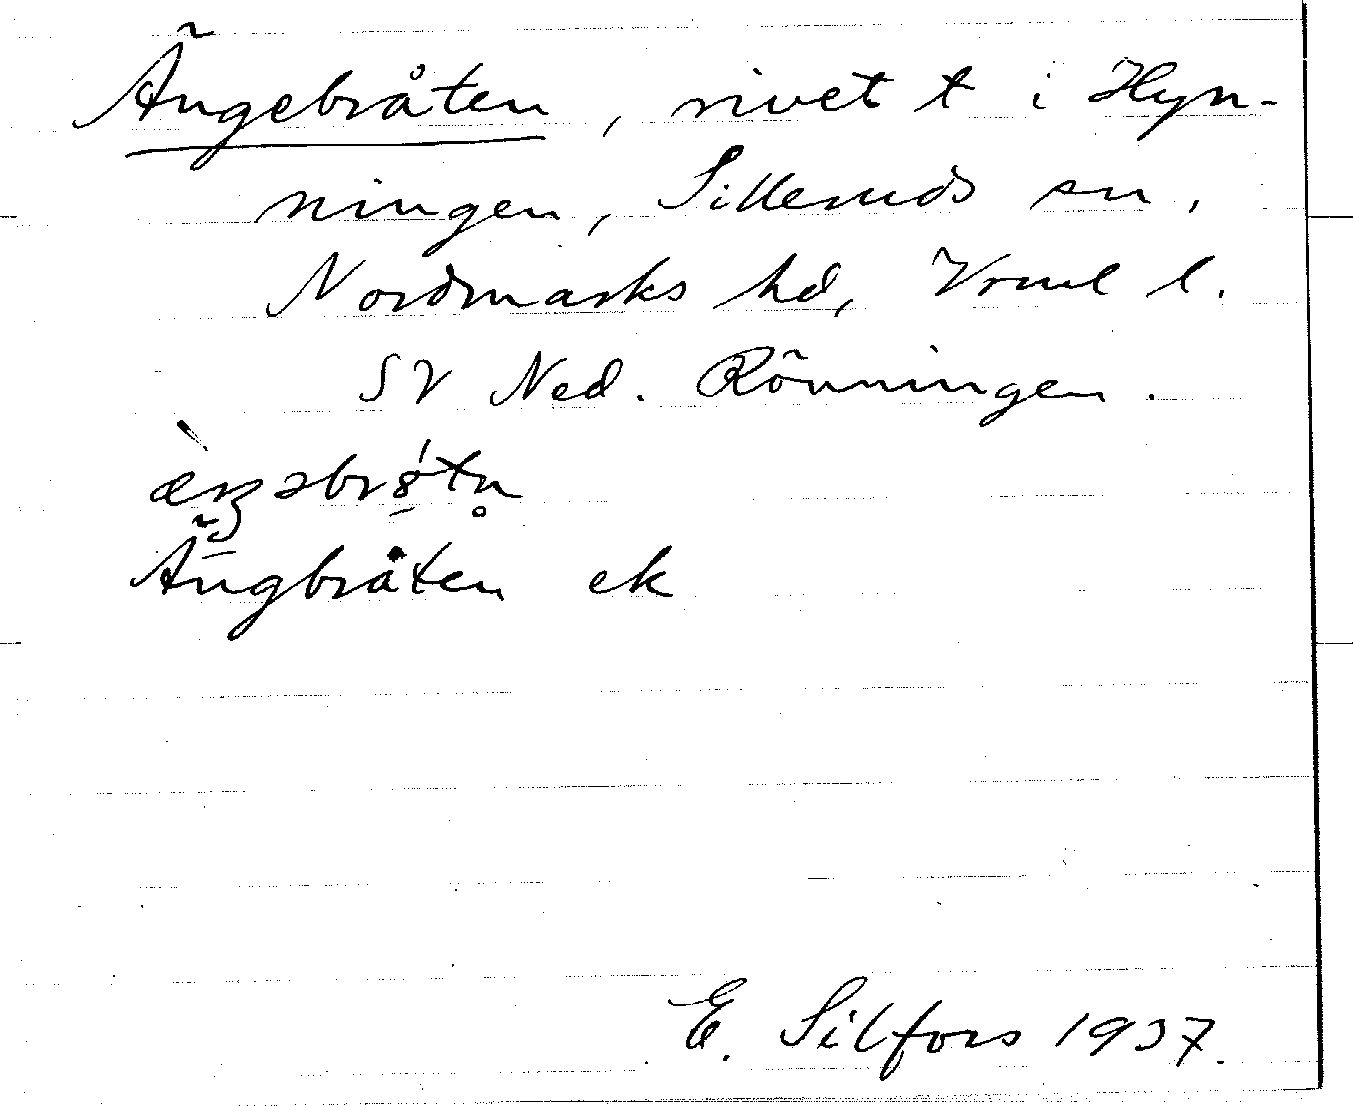 Ängebråten, rivet t i Hyn-
ningen, Silleruds sn,
Nordmarks hd, Vrml l.
SV Ned. Rönningen.
Ängbråten ek
E. Silfors 1937.